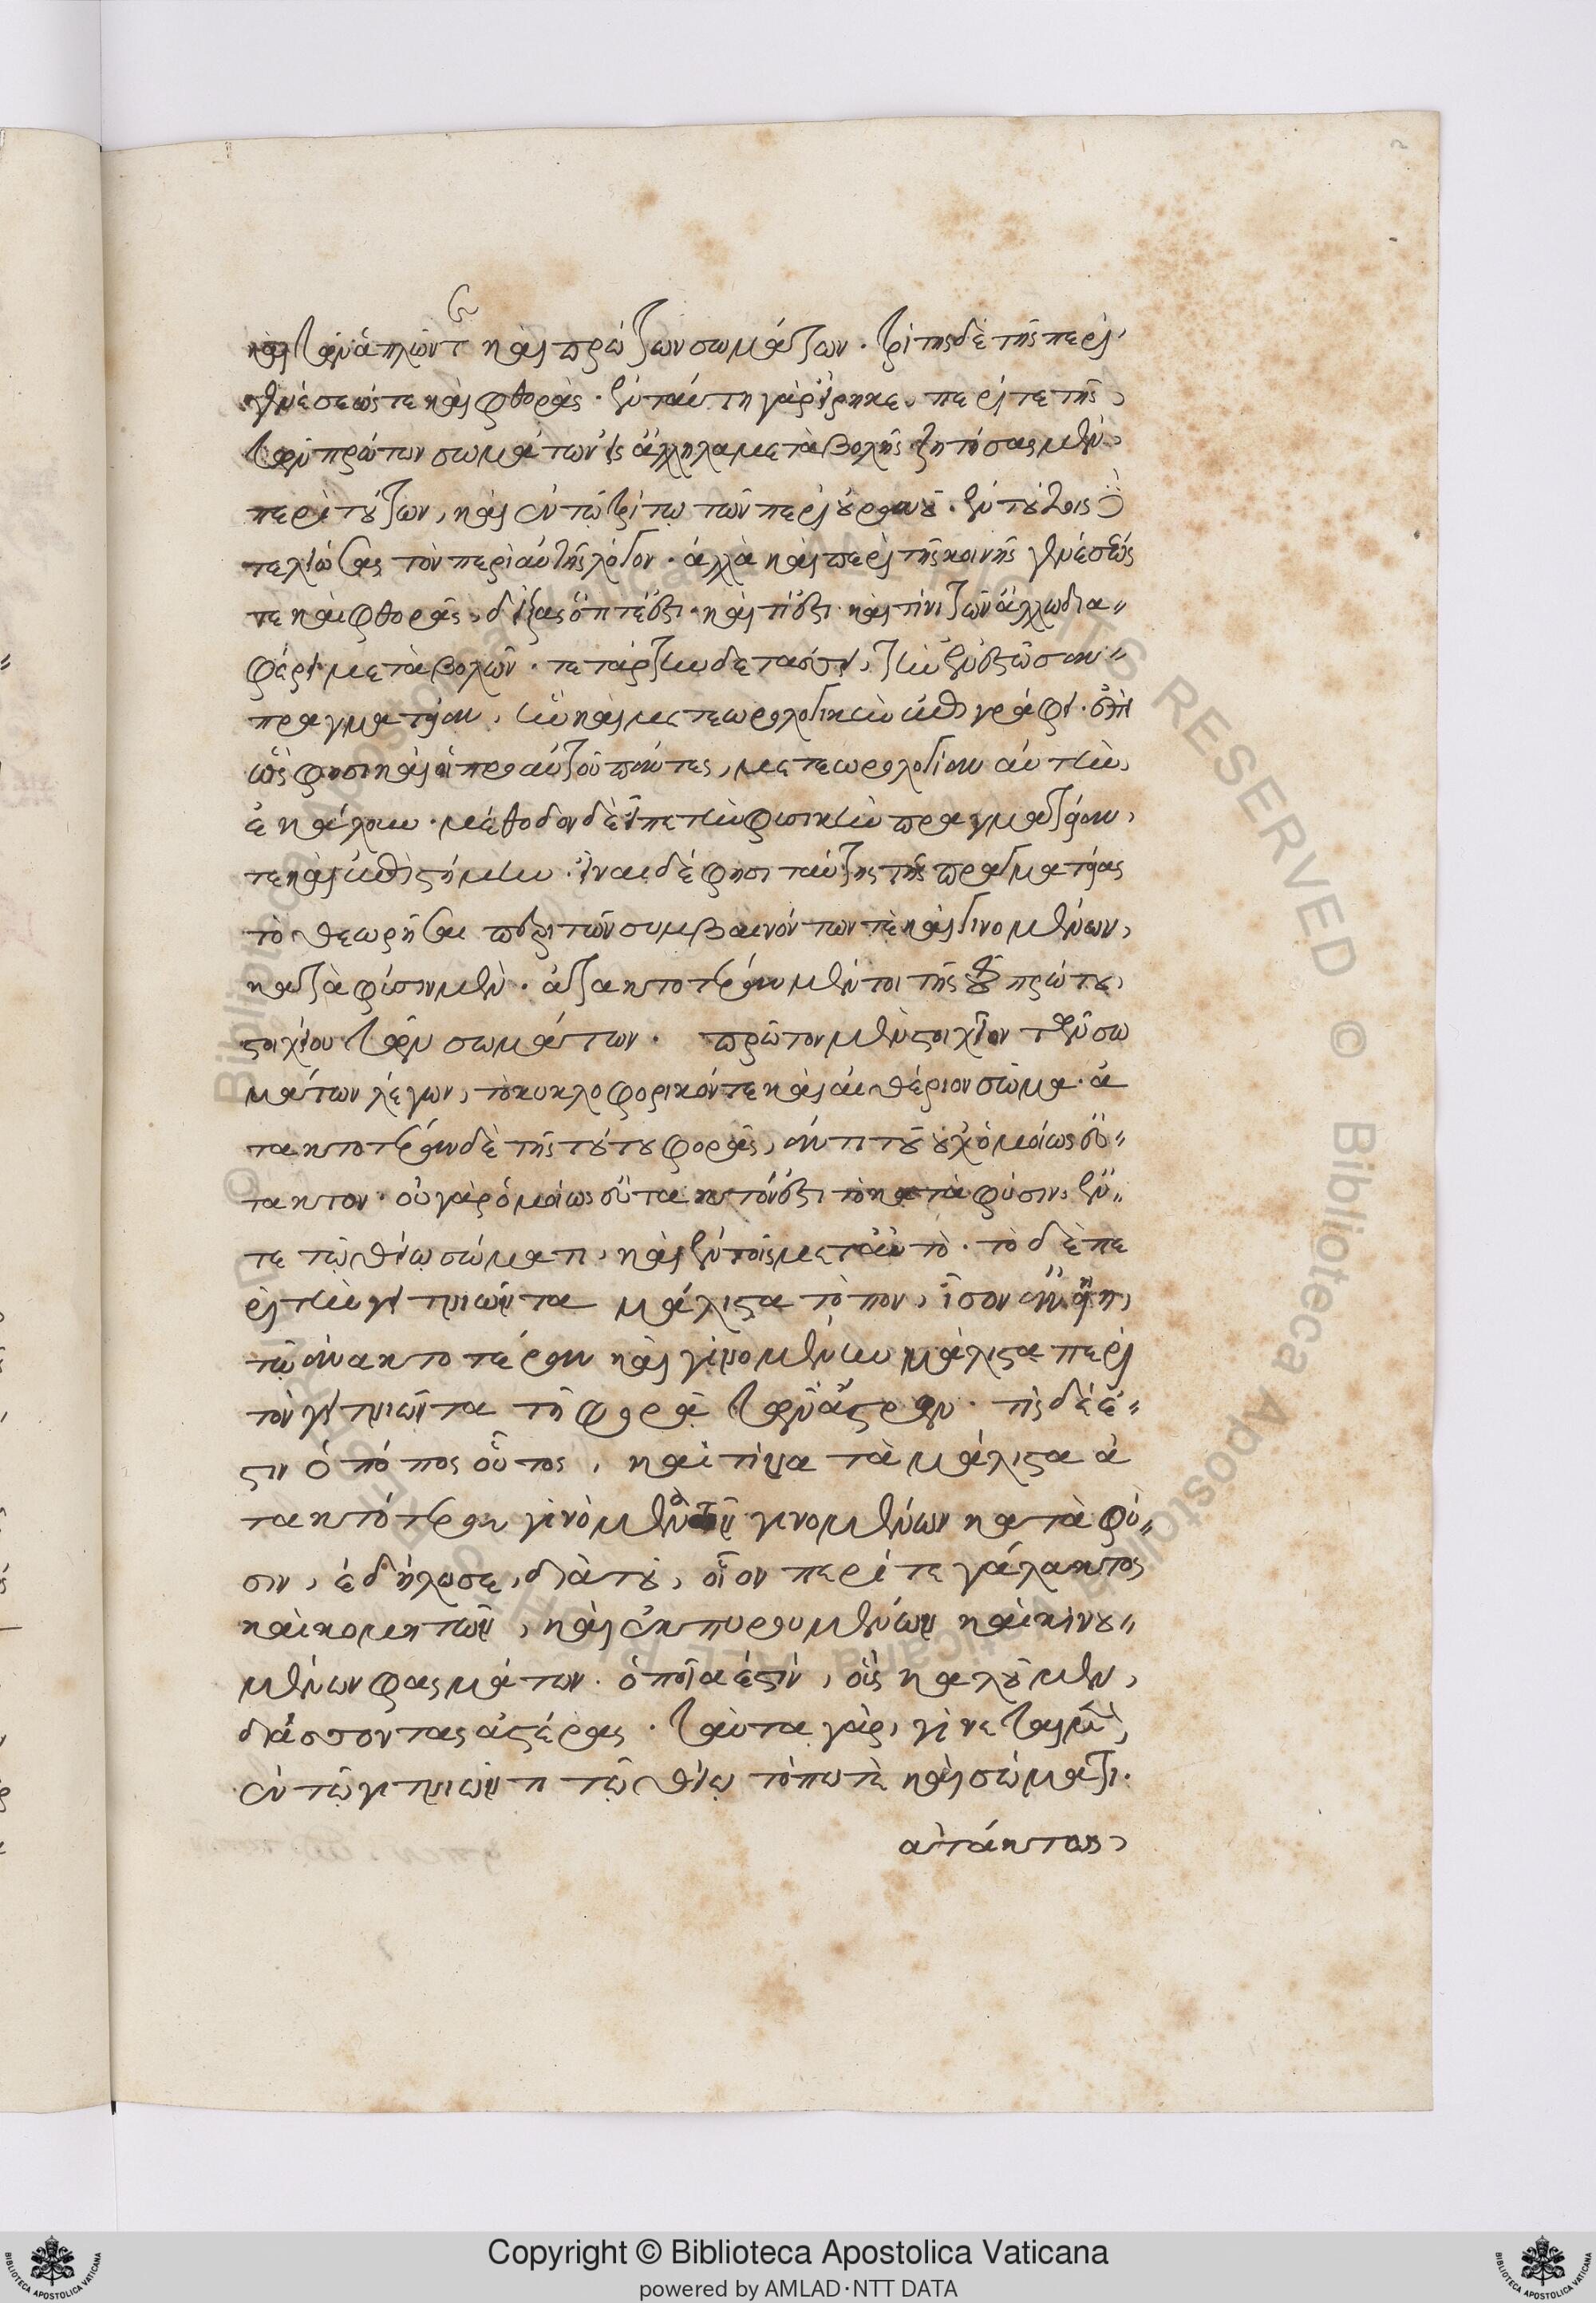 καὶ τῶν ἁπλῶν τε καὶ πρώτων σωμάτων. τρίτης δὲ τῆς περὶ
γενέσεώς τε καὶ φθορᾶς. ἐν ταύτῃ γὰρ εἴρηκε, περί τε τῆς
τῶν πρώτων σωμάτων εἰς ἄλληλα μεταβολῆς ζητήσας μὲν
περὶ τούτων, καὶ ἐν τῷ τρίτῳ τῶν περὶ οὐρανοῦ. ἐν τούτοις
τελειώσας τὸν περὶ αὐτῆς λόγον. ἀλλὰ καὶ περὶ τῆς κοινῆς γενέσεώς
τε καὶ φθορᾶς, δείξας ὅτι τέ ἐστι καὶ τί ἐστι καὶ τίνι τῶν ἄλλων δια〃
φέρει μεταβολῶν. τετάρτην δὲ τάσσει, τὴν ἐνεστῶσαν〃
πραγματείαν, ἣν καὶ μετεωρολογικὴν ἐπιγράφει. ἐπεὶ
ὥς φησι καὶ οἱ πρὸ αὐτοῦ πάντες, μετεωρολογίαν αὐτὴν
ἐκάλουν. μέθοδον δὲ εἶπε τὴν φυσικὴν πραγματείαν,
τε καὶ ἐπιστήμην. εἶναι δέ φησι ταύτης τῆς πραγματείας
τὸ θεωρῆσαι περὶ τῶν συμβαινόντων τε καὶ γινομένων,
κατὰ φύσιν μὲν. ἀτακτοτέραν μέντοι τῆς τοῦ πρώτου
στοιχείου τῶν σωμάτων. πρῶτον μὲν στοιχεῖον τῶν σω
μάτων λέγων, τὸ κυκλοφορικόν τε καὶ αἰθέριον σῶμα. ἀ
τακτοτέραν δὲ τῆς τούτου φορᾶς, ἀντὶ τοῦ οὐχ ὁμοίως εὔ〃
τακτον. οὐ γὰρ ὁμοίως εὔτακτόν ἐστι τὸ κατὰ φύσιν, ἔν〃
τε τῷ θείῳ σώματι, καὶ ἐν τοῖς μετ' αὐτό. τὸ δὲ πε
ρὶ τὴν γειτνιῶντα μάλιστα τόπον, ἴσον ἂν εἴη,
τῷ ἀνακτοτέραν καὶ γινομένην μάλιστα περὶ
τὸν γειτνιῶντα τῇ φορᾷ τῶν ἄστρων. τίς δέ ἐ〃
στιν ὁ τόπος οὗτος, καὶ τίνα τὰ μάλιστα ἀ
τακτότερον γινόμενα τῶν γινομένων κατὰ φύ〃
σιν, ἐδήλωσε, διὰ τοῦ, οἷον περί τε γάλακτος
καὶ κομητῶν, καὶ ἐκπυρουμένων καὶ κινου〃
μένων φασμάτων. ὁποῖά ἐστιν, οὓς καλοῦμεν,
διάσσοντας ἀστέρας. ταῦτα γὰρ, γίνεται μὲν
ἐν τῷ γειτνιῶντι τῷ θείῳ τόπῳ τε καὶ σώματι.
ἀτάκτως,